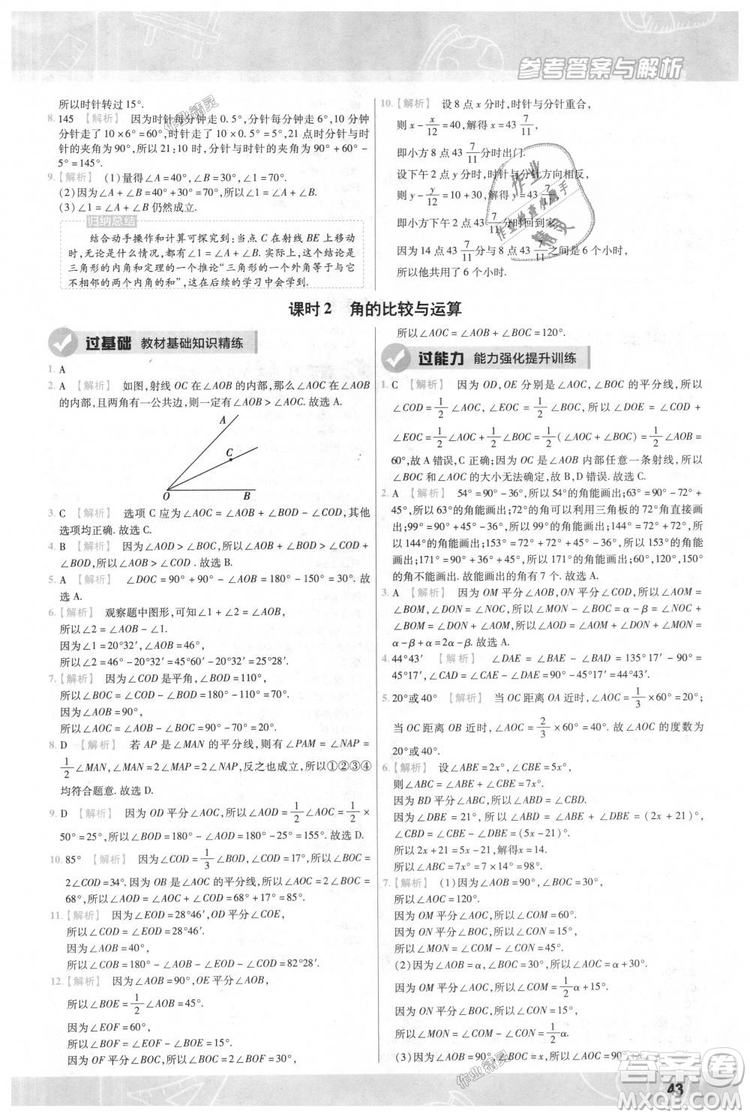 参考答案与解析
所以时针转过 15°.
8. 145 【解析】 因为时针每分钟走 0.5°,分针每分钟走 6°,10 分钟走了 10×6°=60°,时针走了 10×0.5°=5°,21 点时分针与时针的夹角为 90°,所以 21:10 时,分针与时针的夹角为 90°+60°-5°=145°.
9.【解析】 (1)量得∠A=40°,∠B=30°,∠1=70°.
(2)因为∠A+∠B=40°+30°=70°,所以∠1=∠A+∠B.
(3)∠1=∠A+∠B 仍然成立.
归纳总结
结合动手操作和计算可探究到:当点 C 在射线 BE 上移动时,无论∠A,∠B 怎么变化,∠1=∠A+∠B 总成立,该结论是三角形的内角和定理的一个推论“三角形的一个外角等于与它不相邻的两个内角的和”,在后续的学习中会学到.
10.【解析】 设 8 点 x 分时针与分针重合,
则 x-x/12=40,解得 x=43 7/11.
即小方 8 点 43 7/11 分时出门.
设下午 2 点 y 分时,时针与分针方向相反,
则 y-y/12=10+30,解得 y=43 7/11.
即小方下午 2 点 43 7/11 分时回家.
因为 14 点 43 7/11 分与 8 点 43 7/11 分之间是 6 个小时,
所以小方此次共用了 6 个小时.
课时 2 角的比较与运算
过基础 教材基础知识精练
1. A
2. A 【解析】 如图,射线 OC 在∠AOB 的内部,那么∠AOC 在∠AOB 的内部,且两角有一公共边,则一定有∠AOB>∠AOC. 故选 A.
A
C
O
B
3. C 【解析】 选项 C 应为∠AOC=∠AOD-∠COD,其他选项均正确. 故选 C.
4. B 【解析】 因为∠AOD>∠BOC,所以∠AOD+∠BOD>∠BOC+∠BOD,所以∠AOB>∠COD. 故选 B.
5. A 【解析】 ∠DOC=90°+90°-∠AOB=180°-150°=30°. 故选 A.
6.【解析】 观察题中图形,可知∠1+∠2=∠AOB,
所以∠2=∠AOB-∠1.
因为∠1=20°32′,∠AOB=46°,
所以∠2=∠AOB-∠1=46°-20°32′=25°28′.
7.【解析】 因为∠COD 是平角,∠BOD=110°,
所以∠BOC=∠COD-∠BOD=180°-110°=70°.
因为∠AOB=90°,
所以∠AOC=∠AOB-∠BOC=90°-70°=20°.
8. D 【解析】 若 AP 是∠MAN 的平分线,则有∠PAM=∠NAP=1/2∠MAN,∠MAN=2∠MAP=2∠NAP,反之也成立,所以①②③④均符合题意. 故选 D.
9. D 【解析】 因为 OD 平分∠AOC,所以∠AOD=1/2∠AOC=1/2×50°=25°,所以∠BOD=180°-∠AOD=180°-25°=155°. 故选 D.
10. 85° 【解析】 因为∠COD=1/3∠BOD,∠COD=17°,所以∠BOC=2∠COD=34°. 因为 OB 是∠AOC 的平分线,所以∠AOC=2∠BOC=68°,所以∠AOD=∠AOC+∠COD=68°+17°=85°.
11.【解析】 因为∠EOD=28°46′,OD 平分∠COE,
所以∠COD=∠EOD=28°46′.
因为∠AOB=40°,
所以∠COB=180°-∠AOB-∠COD-∠EOD=82°28′.
12.【解析】 因为∠AOB=90°,OE 平分∠AOB,
所以∠BOE=1/2∠AOB=45°.
因为∠EOF=60°,
所以∠BOF=∠EOF-∠BOE=15°.
因为 OF 平分∠BOC,所以∠BOC=2∠BOF=30°,
所以∠AOC=∠AOB+∠BOC=120°.
过能力 能力强化提升训练
1. C 【解析】 因为 OD,OE 分别是∠AOC,∠BOC 的平分线,所以∠COD=1/2∠AOC,∠COE=1/2∠BOC,所以∠DOE=∠COD+∠COE=1/2∠AOC+1/2∠BOC=1/2∠AOB,所以∠DOE=1/2∠AOB=60°,故 A 错误,C 正确;因为 OC 是∠AOB 内部任意一条射线,所以∠BOC 和∠AOC 的大小无法确定,故 B,D 错误. 故选 C.
2. A 【解析】 54°=90°-36°,所以 54°的角能画出;63°=90°-72°+45°,所以 63°的角能画出;72°的角可以利用三角板的 72°角直接画出;99°=90°+45°-36°,所以 99°的角能画出;144°=72°+72°,所以 144°的角能画出;153°=72°+72°+45°-36°,所以 153°的角能画出;171°=90°+36°+45°,所以 171°的角能画出. 综上可知,能画出的角有 7 个. 故选 A.
3. A 【解析】 因为 OM 平分∠AOB,ON 平分∠COD,所以∠AOM=∠BOM,∠DON=∠NOC,所以∠MON-∠BOC=α-β=∠NOC+∠BOM=∠DON+∠AOM,所以∠AOD=∠MON+∠DON+∠AOM=α+α-β=2α-β. 故选 A.
4. 44°43′ 【解析】 ∠DAE=∠BAE-∠BAD=135°17′-90°=45°17′,∠CAD=∠CAE-∠DAE=90°-45°17′=44°43′.
5. 20°或 40° 【解析】 当 OC 距离 OA 近时,∠AOC=1/3×60°=20°;当 OC 距离 OB 近时,∠AOC=2/3×60°=40°. 故∠AOC 的度数为 20°或 40°.
6.【解析】 设∠ABE=2x°,∠CBE=5x°,
则∠ABC=∠ABE+∠CBE=7x°.
因为 BD 平分∠ABC,所以∠ABD=∠CBD.
因为∠ABD=∠ABE+∠DBE=(2x+21)°,
∠CBD=∠CBE-∠DBE=(5x-21)°,
所以 2x+21=5x-21,解得 x=14.
所以∠ABC=7x°=7×14°=98°.
7.【解析】 (1)因为∠AOB=90°,∠BOC=30°,
所以∠AOC=120°.
因为 OM 平分∠AOC,所以∠COM=60°.
因为 ON 平分∠BOC,所以∠CON=15°.
所以∠MON=∠COM-∠CON=45°.
(2)因为∠AOB=α,∠BOC=30°,所以∠AOC=α+30°.
因为 OM 平分∠AOC,所以∠COM=α/2+15°.
因为 ON 平分∠BOC,所以∠CON=15°.
所以∠MON=∠COM-∠CON=α/2.
(3)因为∠AOB=90°,∠BOC=x,所以∠AOC=90°+x.
43
答案圈
MXQE.COM
作业精灵